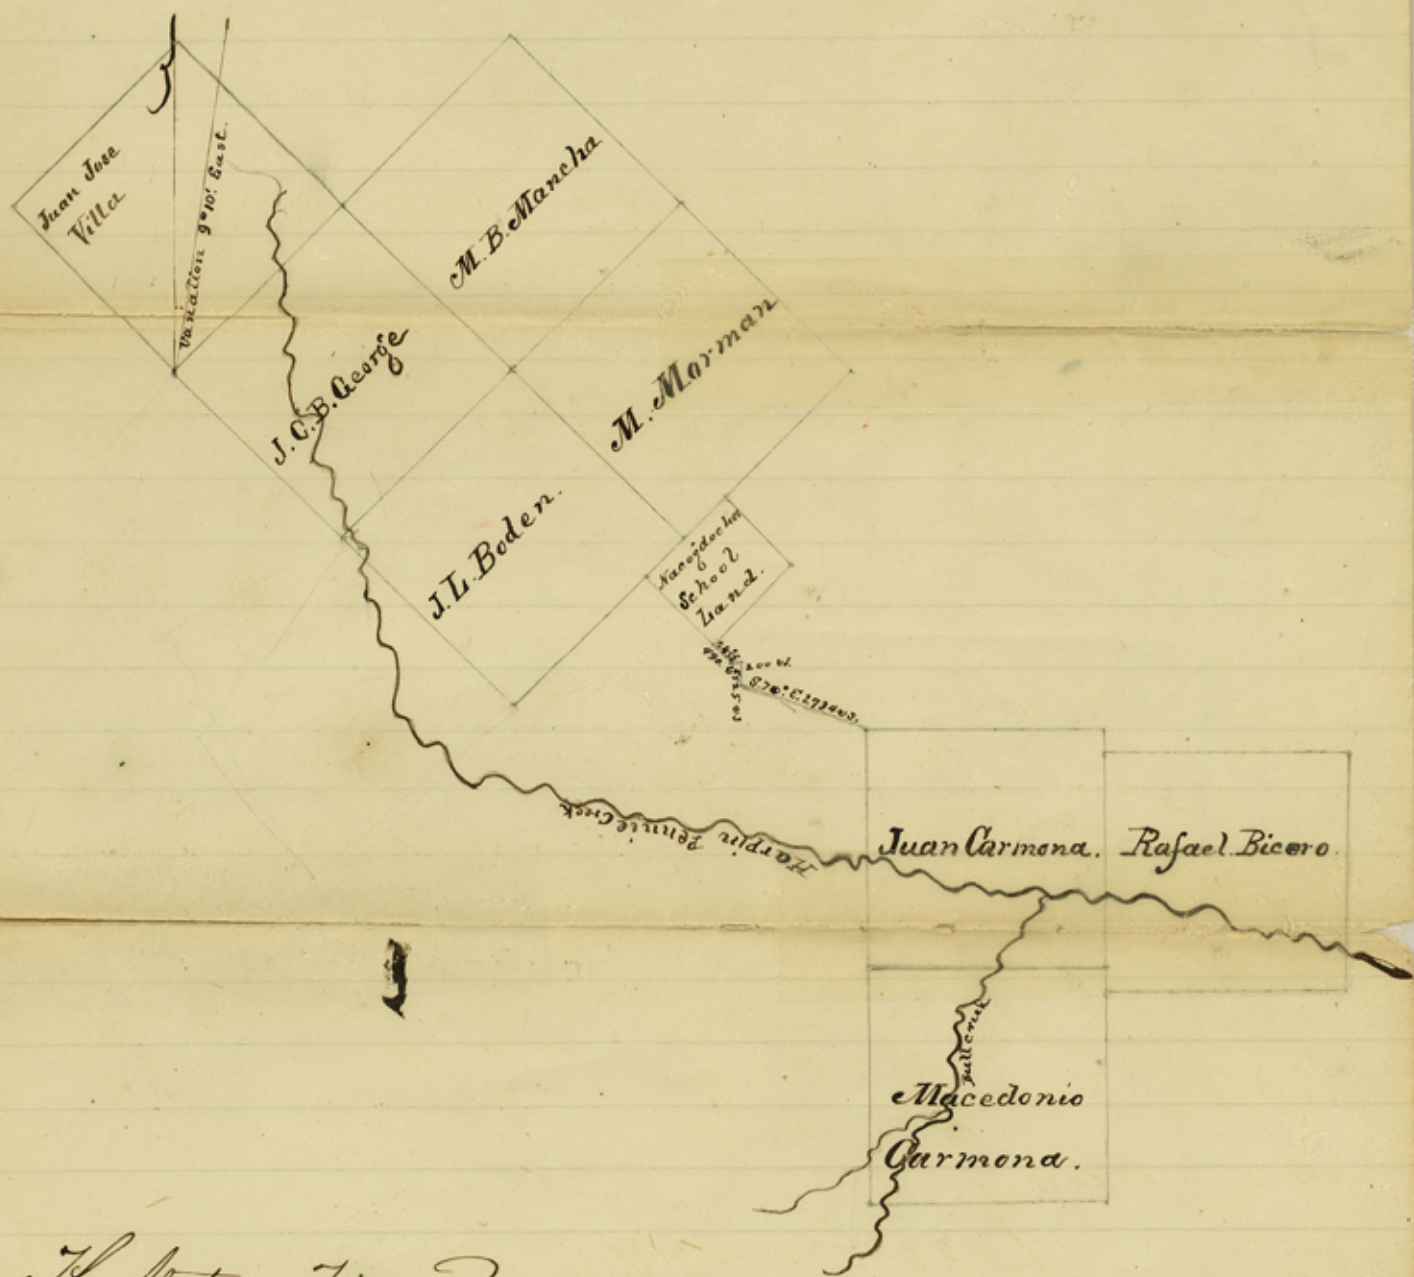 Juan Jose
Villa
Variation 9°10' East.
M. B. Mancha
J. C. B. George
M. Morman
J. L. Boden.
Nacogdoches
School
Land.
200 W.
S. 70° E. 2794 vs.
Harpin Pennie Creek
Juan Carmona.
Rafael Bicero
Bull Creek
Macedonio
Carmona.